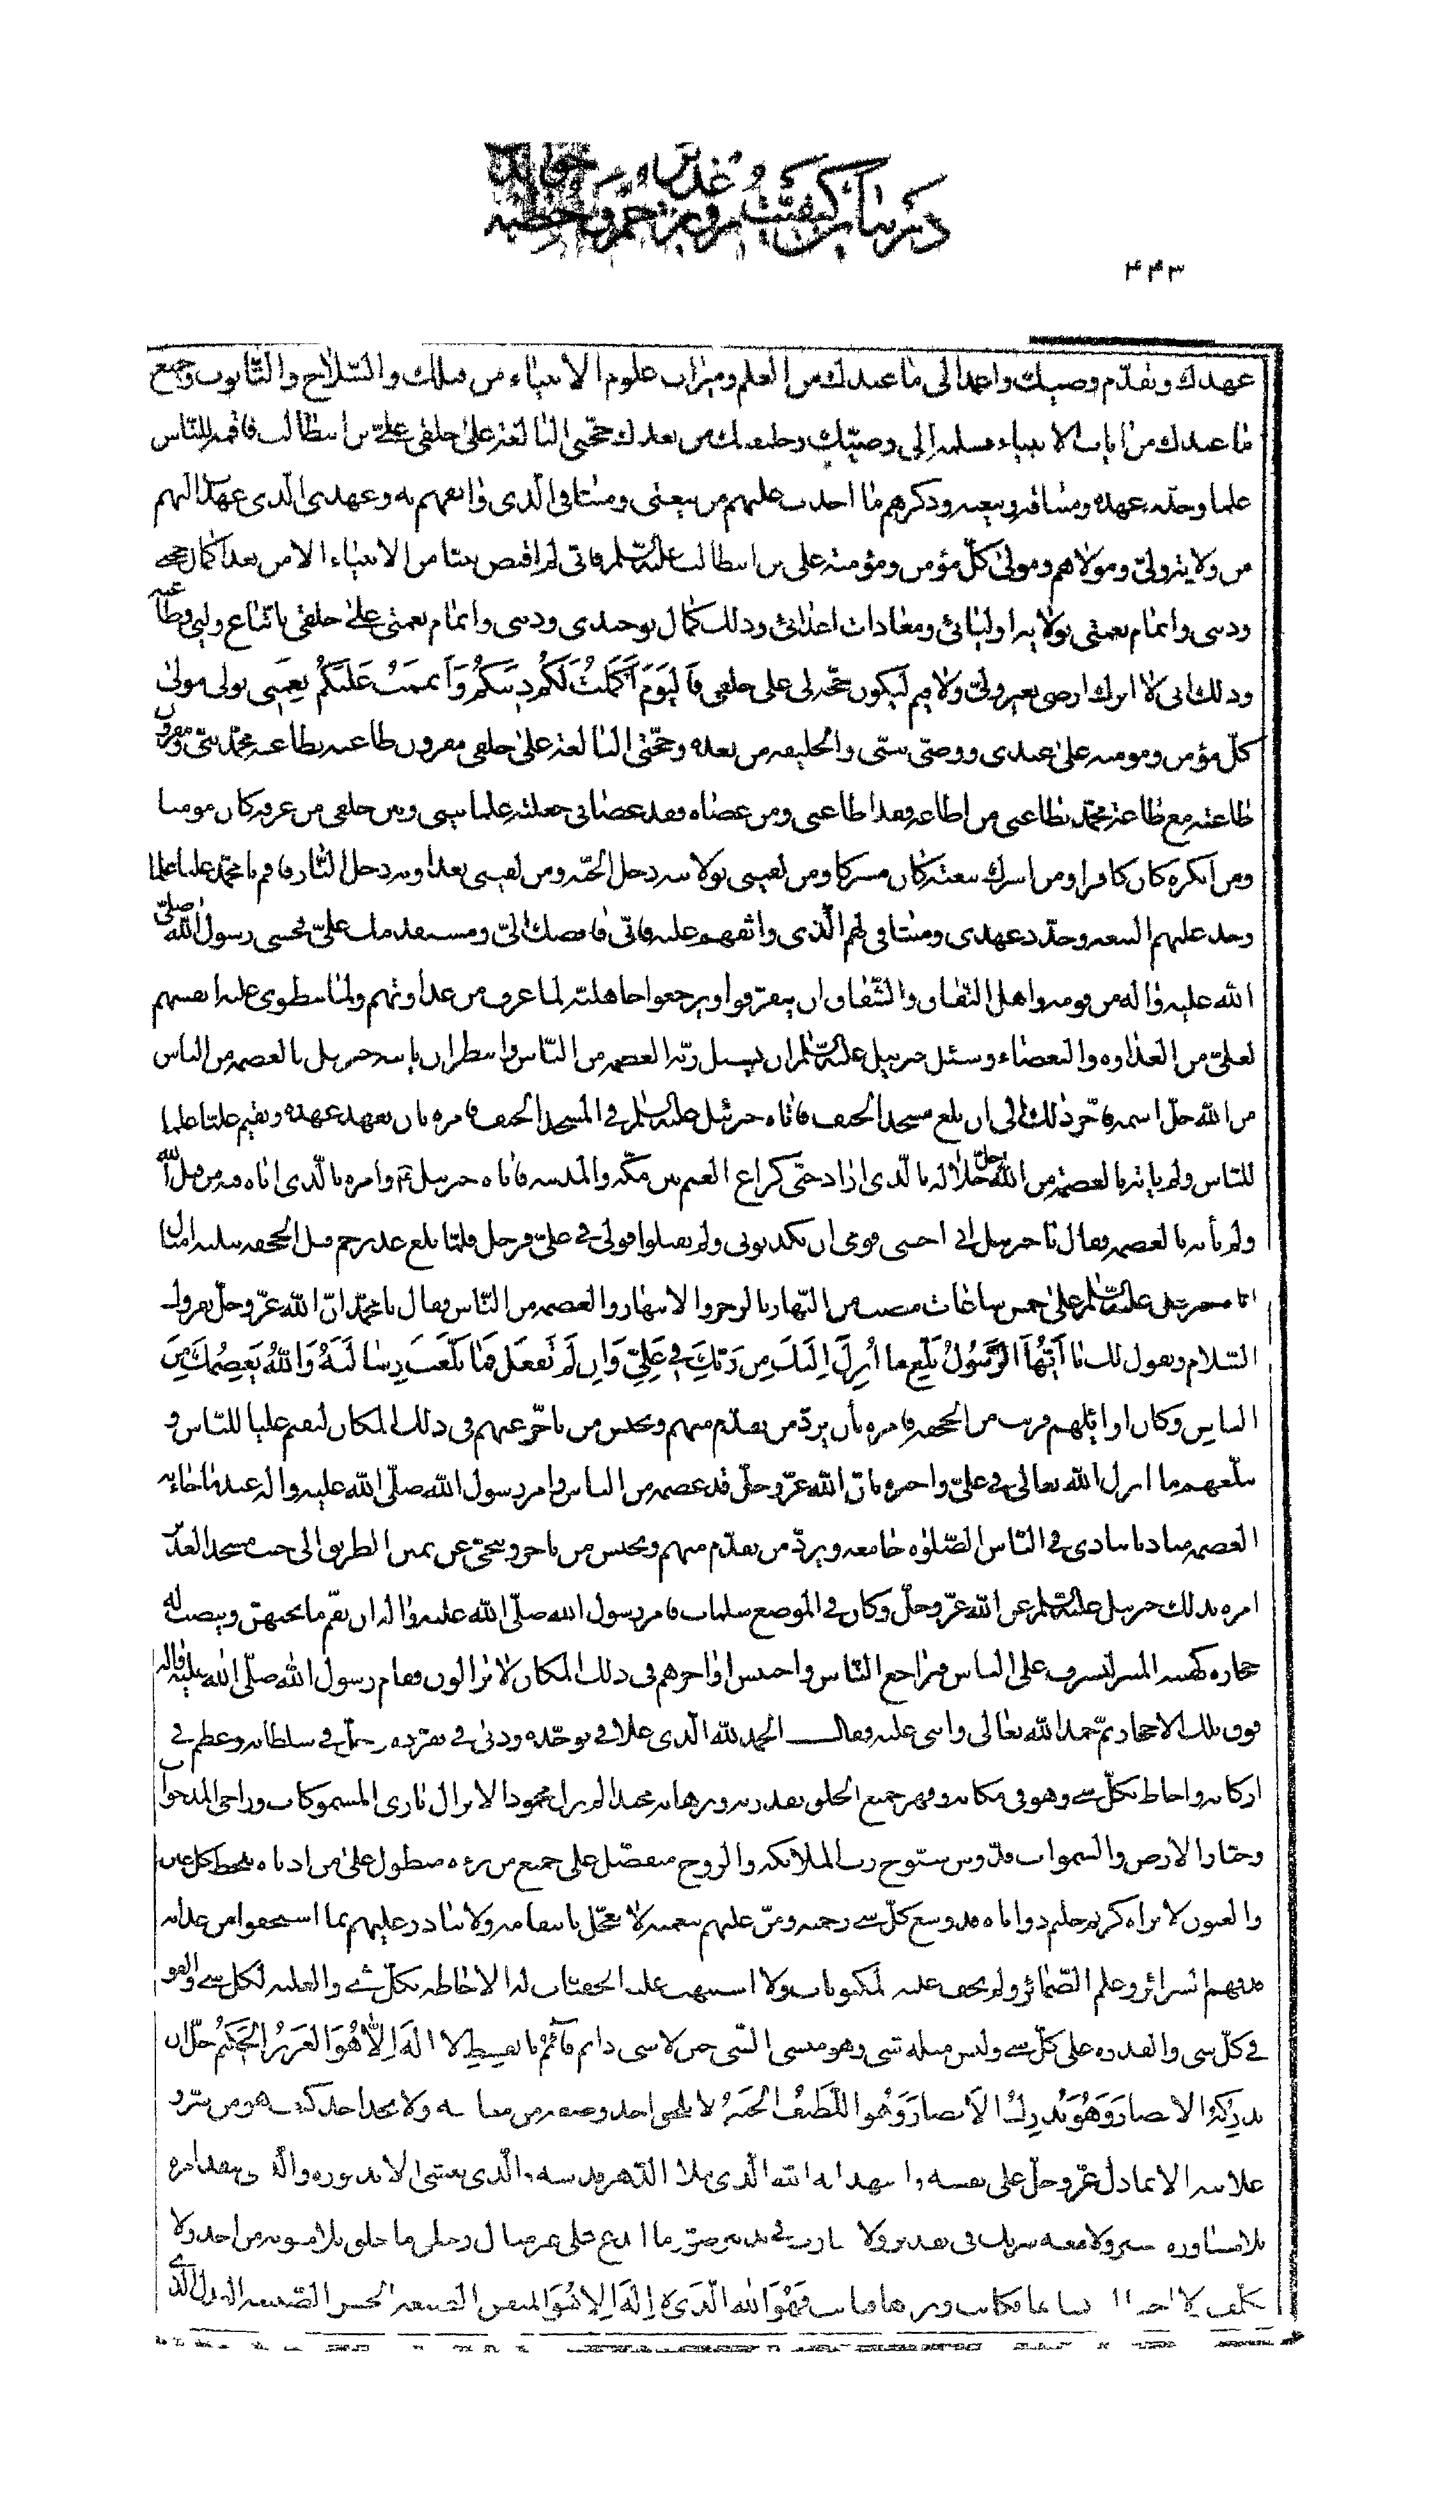 در بیان کیفیت روز غدیر خم و خطبه خواندن
۴۴۳
عهدك و تقدّم وصیتك و اعمد الى ما عندك من العلم و میراث علوم الانبیاء من قبلك و السّلاح و التّابوت و جمیع
ما عندك من ایات الانبیاء فسلمه إلى وصیّك و خلیفتك من بعدك حجّتى البالغة على خلقى علىّ بن ابیطالب فاقمه للنّاس
علما و جدّد عهده و میثاقه و بیعته و ذكرهم ما اخذت علیهم من بیعتى و میثاقى الّذى واثقتهم به و عهدى الّذى عهدت الیهم
من ولایة ولیّى و مولاهم و مولى كلّ مؤمن و مؤمنة على بن ابیطالب علیه السّلم فانّى لم اقبض نبیّا من الانبیاء الا من بعد اكمال حجتى
و دینى و اتمام نعمتى بولایة اولیائى و معادات اعدائى و ذلك كمال توحیدى و دینى و اتمام نعمتى على خلقى باتّباع ولیى و طاعته
و ذلك انى لا اترك ارضى بغیر ولىّ و لا قیم لیكون حجّة لى على خلقى فَالیَوْمَ اَكْمَلْتُ لَكُمْ دِینَكُمْ وَ اَتمَمْتُ عَلَیْكُمْ نِعْمَتى بولى مولى
كلّ مؤمن و مومنه على عبدى و وصىّ نبیّى و الخلیفه من بعده و حجّتى البالغة على خلقى مقرون طاعته بطاعة محمّد نبیّى و مقرون
طاعته مع طاعة محمّد بطاعتى من اطاعه فقد اطاعنى و من عصاه فقد عصانى جعلته علما بینى و بین خلقى من عرفه كان مومنا
و من انكره كان كافرا و من اشرك ببیعته كان مشركا و من لقینى بولایته دخل الجنّة و من لقینى بعداوته دخل النّار فاقم یا محمّد علیا علما
و خذ علیهم البیعه و جدّد عهدى و میثاقى لهم الّذى واثقتهم علیه فانّى قابضك الىّ و مستقدمك علىّ فخشى رسول اللّه صلّى
اللّه علیه و اله من قومه و اهل النّفاق و الشّقاق ان یتفرّقوا و یرجعوا جاهلیّة لما عرف من عداوتهم و لما ینطوى علیه انفسهم
لعلىّ من العداوه و البغضاء و سئل جبرئیل علیه السّلم ان یسئل ربّه العصمه من النّاس و انتظر ان یاتیه جبرئیل بالعصمه من الناس
من اللّه جلّ اسمه فاخّر ذلك الى ان بلغ مسجد الخیف فاتاه جبرئیل علیه السّلم فى المسجد الخیف فامره بان یعهد عهده و یقیم علیّا علما
للنّاس و لم یاته بالعصمة من اللّه جلّ جلاله بالّذى اراد حتّى كراع الغمیم بین مكّه و المدینه فاتاه جبرئیل ع و امره بالّذى اتاه فیه من قبل اللّه
و لم یأته بالعصمه فقال یا جبرئیل انى اخشى قومى ان یكذبونى و لم یقبلوا قولى فى علىّ فرحل فلمّا بلغ غدیر خم قبل الجحفه بثلثه امیال
اتاه جبرئیل علیه السّلم على خمس ساعات مضت من النّهار بالزجر و الانتهار و العصمه من النّاس فقال یا محمّد انّ اللّه عزّ و جلّ یقرئك
السّلام و یقول لك یا اَیُّهَا الرَّسُولُ بَلِّغ ما اُنزِلَ اِلَیْكَ مِن رَبِّكَ فى عَلِىٍّ وَ اِن لَم تَفعَل فَما بَلَّغتَ رِسالَتَهُ وَ اللّهُ یَعصِمُكَ مِنَ
الناسِ و كان اوائلهم قریب من الجحفه فامره بأن یردّ من تقدّم منهم و یحبس من تاخّر عنهم فى ذلك المكان لیقیم علیا للنّاس و
یبلّغهم ما انزل اللّه تعالى فى علىّ و اخبره بانّ اللّه عزّ و جلّ قد عصمه من الناس فامر رسول اللّه صلّى اللّه علیه و اله عندما جائه
العصمه منادیا ینادى فى النّاس الصّلوه جامعه و یردّ من تقدّم منهم و یحبس من تاخر و تنحّى عن یمین الطریق الى جنب مسجد الغدیر
امره بذلك جبرئیل علیه السّلم عن اللّه عزّ و جلّ و كان فى الموضع سلمات فامر رسول اللّه صلّى اللّه علیه و اله ان یقمّ ما تحتهنّ و ینصب له
حجاره كهیئه المنبر لیشرف على الناس فتراجع النّاس و احتبس اواخرهم فى ذلك المكان لا یزالون فقام رسول اللّه صلّى اللّه علیه و اله
فوق تلك الاحجار ثمّ حمد اللّه تعالى و اثنى علیه فقال الحمد للّه الّذى علا فى توحّده و دنى فى تفرّده و جلّ فى سلطانه و عظم فى
اركانه و احاط بكلّ شى و هو فى مكانه و قهر جمیع الخلق بقدرته و برهانه مجیدا لم یزل محمودا لا یزال بارى المسموكات و داحى المدحوات
و جبّار الارض و السموات قدّوس سبّوح رب الملائكه و الروح متفضّل على جمیع من برءه متطول على من ادناه یلحظ كل عین
و العیون لا تراه كریم حلیم ذو اناه قد وسع كلّ شى رحمته و منّ علیهم بنعمته لا یعجّل بانتقامه و لا یبادر علیهم بما استحقوا من عذابه
قد فهم السرائر و علم الضّمائر و لم یخف علیه المكنونات و لا اشتبهت علیه الخفیّات له الاحاطه بكلّ شى و الغلبه لكل شى و القوه
فى كلّ شى و القدره على كلّ شى و لیس مثله شى و هو منشى الشى حین لا شى دائم قآئمٌ بالقِسطِ لا الهَ اِلّا هُوَ العَزیزُ الحَكیمُ جلّ ان
تدركهُ الابصار وَ هُوَ یُدرِكُ الاَبصارَ وَ هُوَ اللَّطیفُ الخَبیرُ لا یلحق احد وصفه من معاینه و لا یجد احد كیف هو من سرّ و
علانیه الا بما دلّ عزّ و جلّ على نفسه و اشهد انه اللّه الّذى ملا الدّهر قدسه و الّذى یغشى الابد نوره و الّذى ینفذ امره
بلا مشاوره مشیر و لا معه شریك فى تقدیره و لا تفاوت فى تدبیره صوّر ما ابدع على غیر مثال و خلق ما خلق بلا معونه من احد و لا
تكلّف و لا فَهُوَ اللّه الّذى لا اِلهَ اِلّا هُوَ المتقن الصنعة الحسن الصّنیعه العدل الّذى